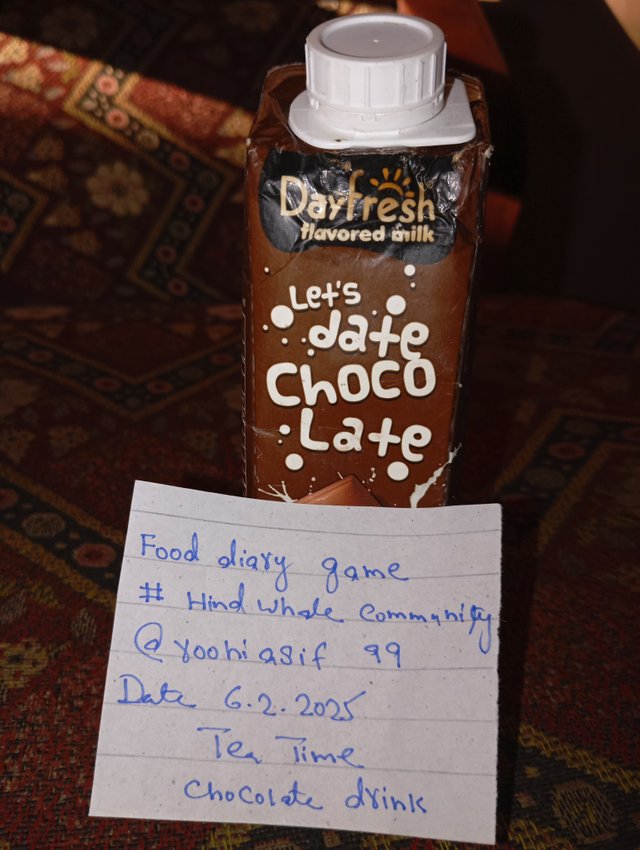 Dayfresh
flavored milk
Let's
date
CHOCO
Late
Food diary game
# Hind whale Community
@roohiasif 99
Date 6.2.2025
Tea Time
Chocolate drink